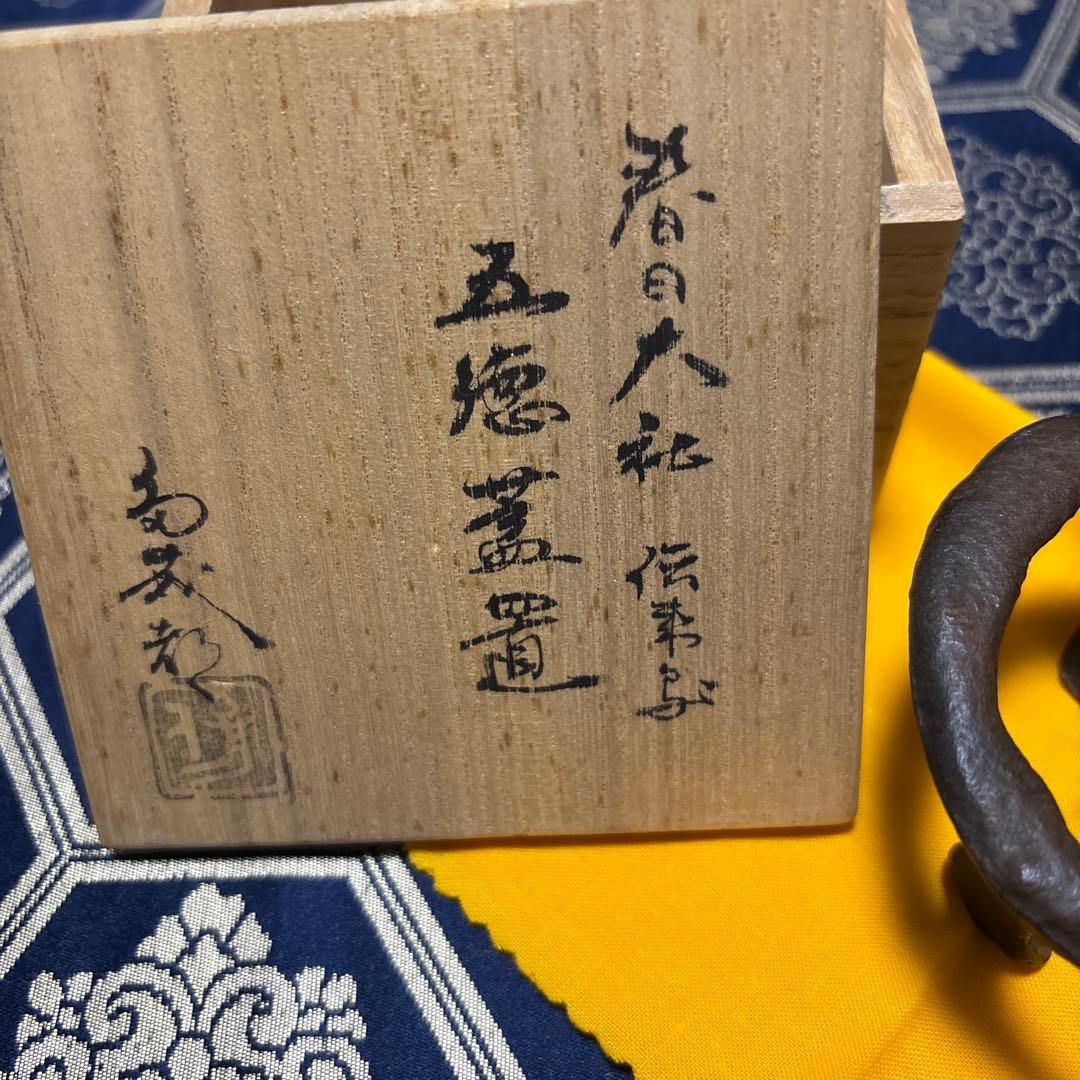 春日大社 伝来写
五徳蓋置